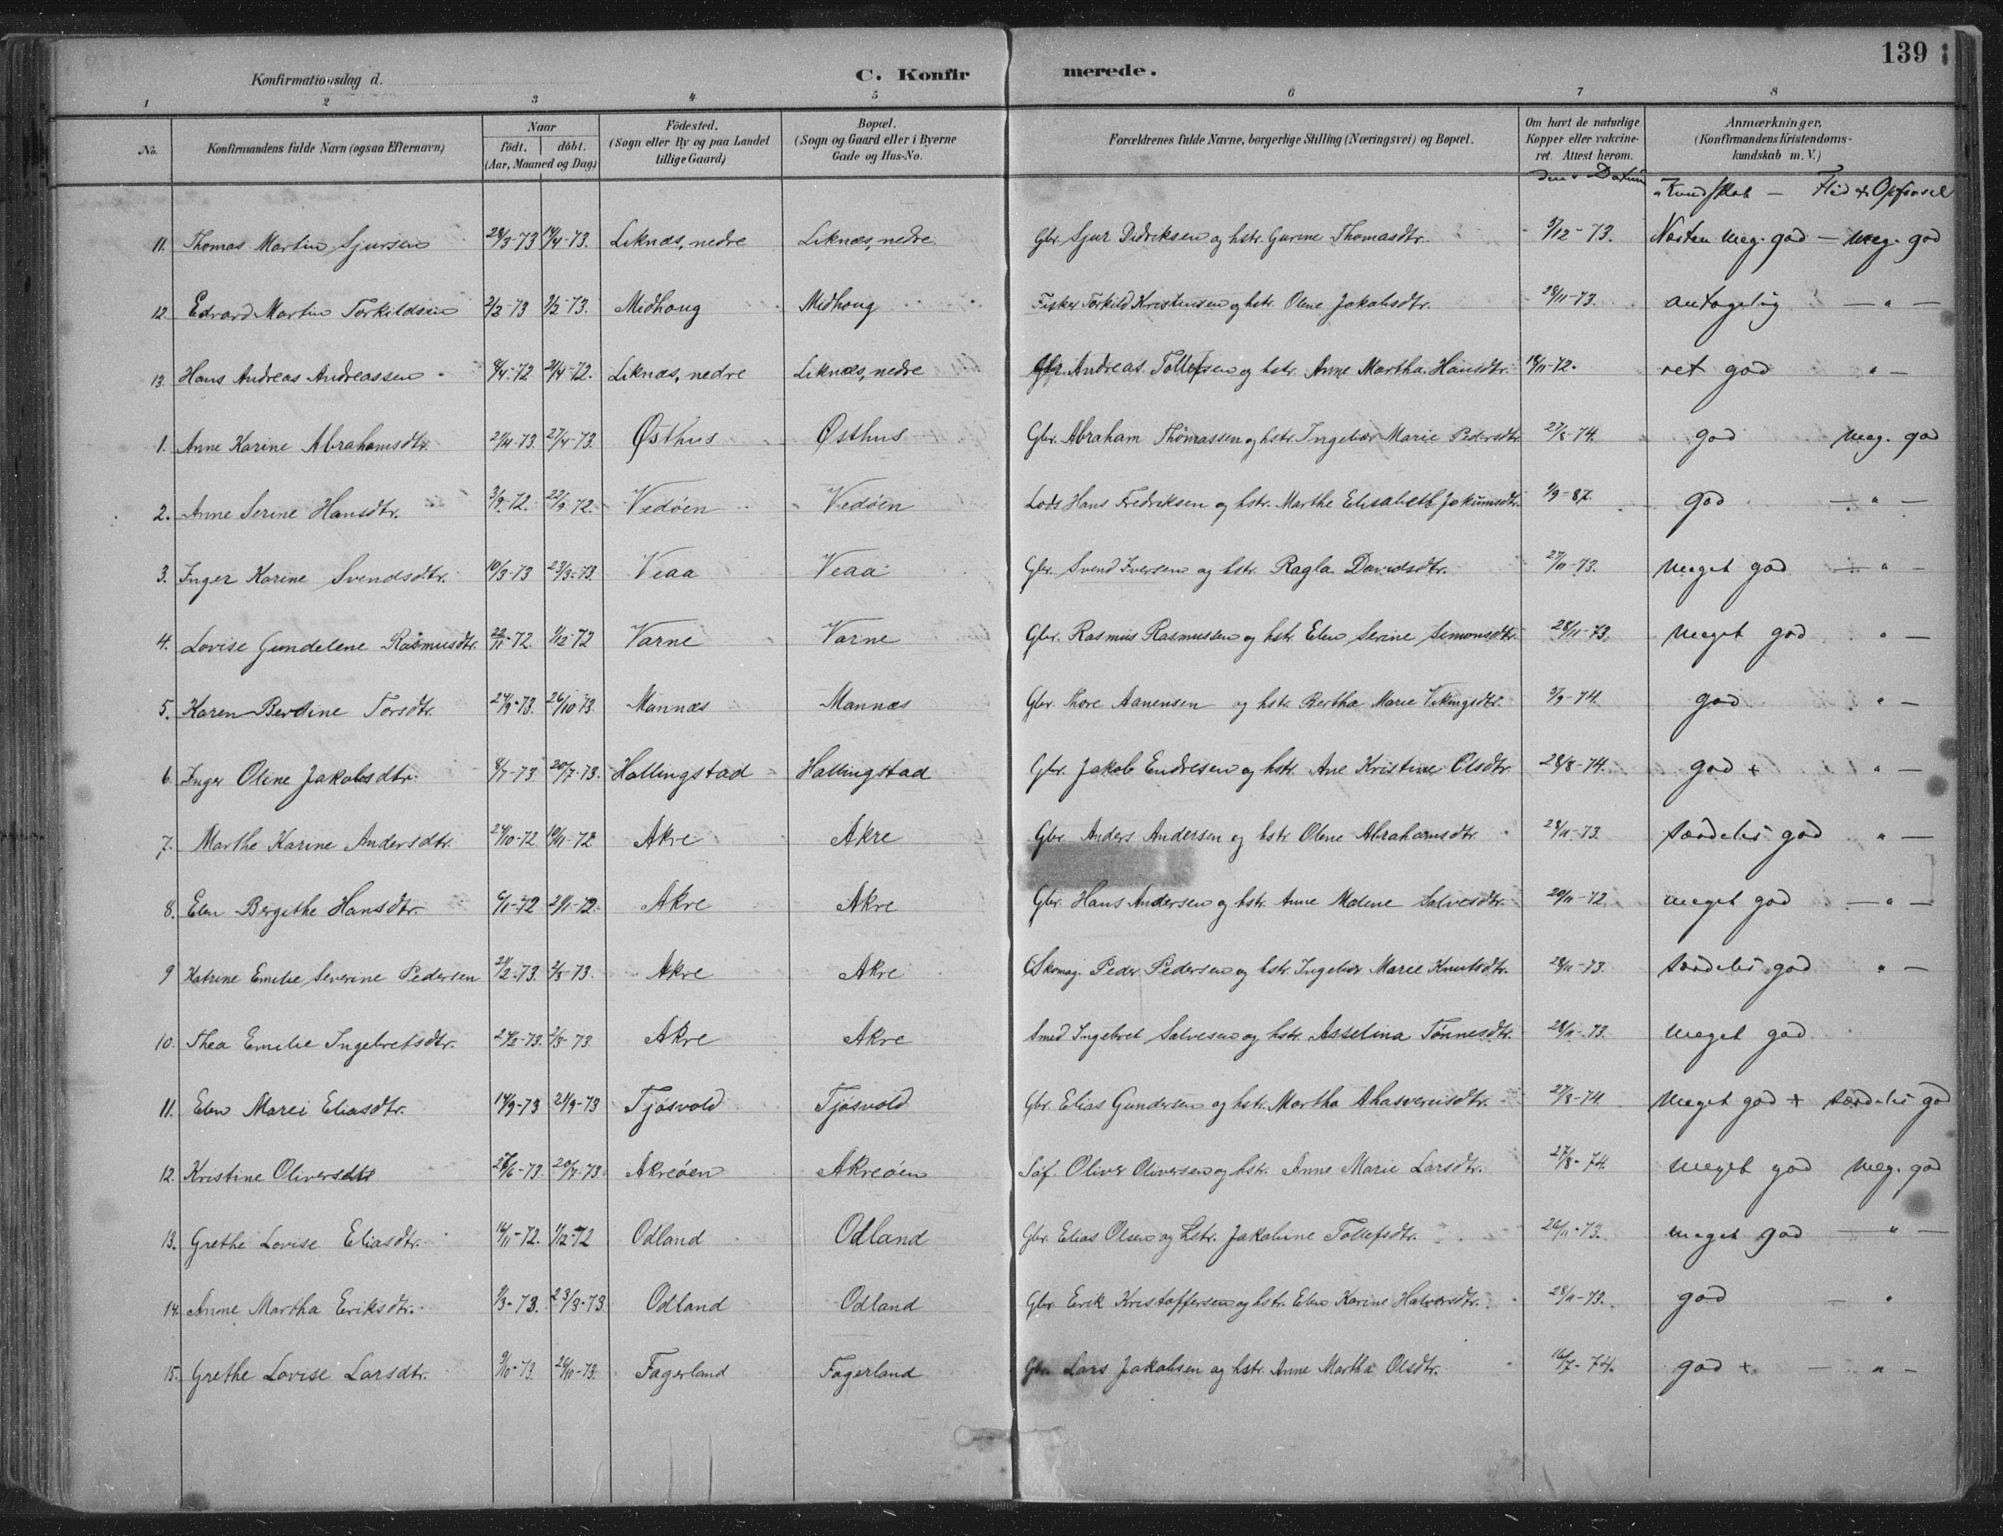 139
Konfirmationsdag d.
C. Konfirmerede.
1 2 3 4 5 6 7 8
No. Konfirmandens fulde Navn (ogsaa Efternavn) Naar født. døbt. (Aar, Maaned og Dag) Födested. (Sogn eller By og paa Landet tillige Gaard) Bopæl. (Sogn og Gaard eller i Byerne Gade og Hus-No. Forældrenes fulde Navne, borgerlige Stilling (Næringsvei) og Bopæl. Om havt de naturlige Kopper eller vakcineret. Attest herom. Anmærkninger, (Konfirmandens Kristendomskundskab m. V.)
Datum Kundskab — Flid & Opførsel
11. Thomas Martin Sjursen 28/3-73 14/4-73. Liknæs, nedre Liknæs, nedre Gbr. Sjur Didriksen og hstr. Gurine Thomasdtr. 3/12-73. Næsten meg. god — meg. god
12 Edvard Martin Torkildsen 2/2-73 9/2-73. Midhoug Midhoug Fisker Torkild Kristensen og hstr. Olene Jakobsdtr. 28/11-73. antagelig — " —
13. Hans Andreas Andreassen 8/4-72 21/4-72. Liknæs, nedre Liknæs, nedre Gbr. Andreas Tollefsen og hstr. Anne Martha Hansdtr. 18/11-72. ret god " —
1. Anne Karine Abrahamsdtr. 21/4-73. 27/4-73. Østhus Østhus Gbr. Abraham Thomassen og hstr. Ingebor Marie Pedersdtr. 27/8-74. god meg. god
2. Anne Serine Hansdtr. 3/9-72. 22/9-72. Vedøen Vedøen Lods Hans Fredriksen og hstr. Marthe Elisabeth Jokumsdtr. 1/9-87. god — " —
3. Inger Karine Svendsdtr. 10/3-73 23/3-73. Veaa Veaa Gbr. Svend Iversen og hstr. Ragla Davidsdtr. 27/11-73. meget god — " —
4. Lovise Gundelene Rasmusdtr. 22/11-72. 1/12-72 Varne Varne Gbr. Rasmus Rasmussen og hstr. Elen Serine Simonsdtr. 28/11-73. meget god " —
5. Karen Berdine Torsdtr. 24/9-73. 26/10-73 Mannæs Mannæs Gbr. Thore Aanensen og hstr. Bertha Marie Vikingsdtr. 3/9-74. god " —
6. Inger Oline Jakobsdtr. 8/7-73 20/7-73. Hallingstad Hallingstad Gbr. Jakob Endresen og hstr. Ane Kristine Olsdtr. 28/8-74. god + " —
7. Marthe Karine Andersdtr. 24/10-72 10/11-72 Akre Akre Gbr. Anders Andersen og hstr. Olene Abrahamsdtr. 28/11-73 særdeles god " —
8. Elen Bergithe Hansdtr. 6/1-72 21/1-72. Akre Akre Gbr. Hans Andersen og hstr. Anne Malene Salvesdtr. 20/11-72 meget god — " —
9 Katrine Emilie Severine Pedersen 21/2-73. 2/3-73. Akre Akre Skomag. Peder Pedersen og hstr. Ingebor Marie Knutsdtr. 28/11-73. særdeles god " —
10. Thea Emilie Ingebretsdtr. 24/2-73. 2/3-73 Akre Akre Smed Ingebret Salvesen og hstr. Asselina Tønnesdtr. 28/11-73. meget god
11. Elen Marei Eliasdtr. 14/9-73 21/9-73 Tjøsvold Tjøsvold Gbr. Elias Gundersen og hstr. Martha Ahasverusdtr. 27/8-74. meget god + særdeles god
12. Kristine Oliversdtr 28/6-73. 20/7-73. Akreøen Akreøen Søf. Oliver Oliversen og hstr. Anne Marie Larsdtr. 27/8-74. meget god meg. god
13. Grethe Lovise Eliasdtr. 14/11-72. 1/12-72 Odland Odland Gbr. Elias Olsen og hstr. Jakobine Tollefsdtr. 26/11-73. meget god — " —
14. Anne Martha Eriksdtr. 9/3-73. 23/3-73. Odland Odland Gbr. Erik Kristoffersen og hstr. Elen Karine Halvorsdtr. 28/11-73. god — "
15. Grethe Lovise Larsdtr. 9/10-73. 26/10-73. Fagerland Fagerland Gbr. Lars Jakobsen og hstr. Anne Martha Olsdtr. 16/7-74. god + — " —